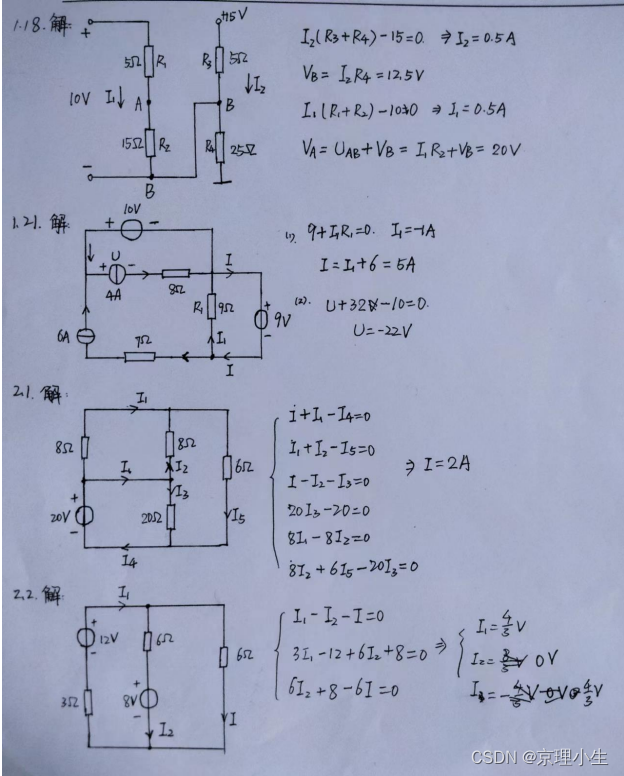 1.18. 解:
+ +15V
5Ω R₁ R₃ 5Ω
10V I₁ A I₂ B
15Ω R₂ R₄ 25Ω
-
B
I₂(R₃+R₄)-15=0. ⇒ I₂=0.5A
V_B = I₂R₄=12.5V
I₁(R₁+R₂)-10=0 ⇒ I₁=0.5A
V_A = U_AB+V_B = I₁R₂+V_B = 20V
1.21. 解:
+ 10V -
U I
+ - 4A 8Ω
R₁ 9Ω + 9V -
6A I₁
7Ω I
(1), 9+I₁R₁=0. I₁=-1A
I=I₁+6=5A
(2). U+32-10=0.
U=-22V
2.1. 解:
I₁
8Ω 8Ω 6Ω
I. I₂
+ I₃
20V 20Ω I₅
-
I₄
i+I₁-I₄=0
I₁+I₂-I₅=0
I-I₂-I₃=0
20I₃-20=0
8I₁-8I₂=0
8I₂+6I₅-20I₃=0
⇒ I=2A
2.2. 解:
I₁
+ 12V - 6Ω 6Ω
3Ω + 8V -
I₂ I
I₁-I₂-I=0
3I₁-12+6I₂+8=0
6I₂+8-6I=0
⇒ I₁=4/3V
I₂= 0V
4/3V
CSDN @京理小生